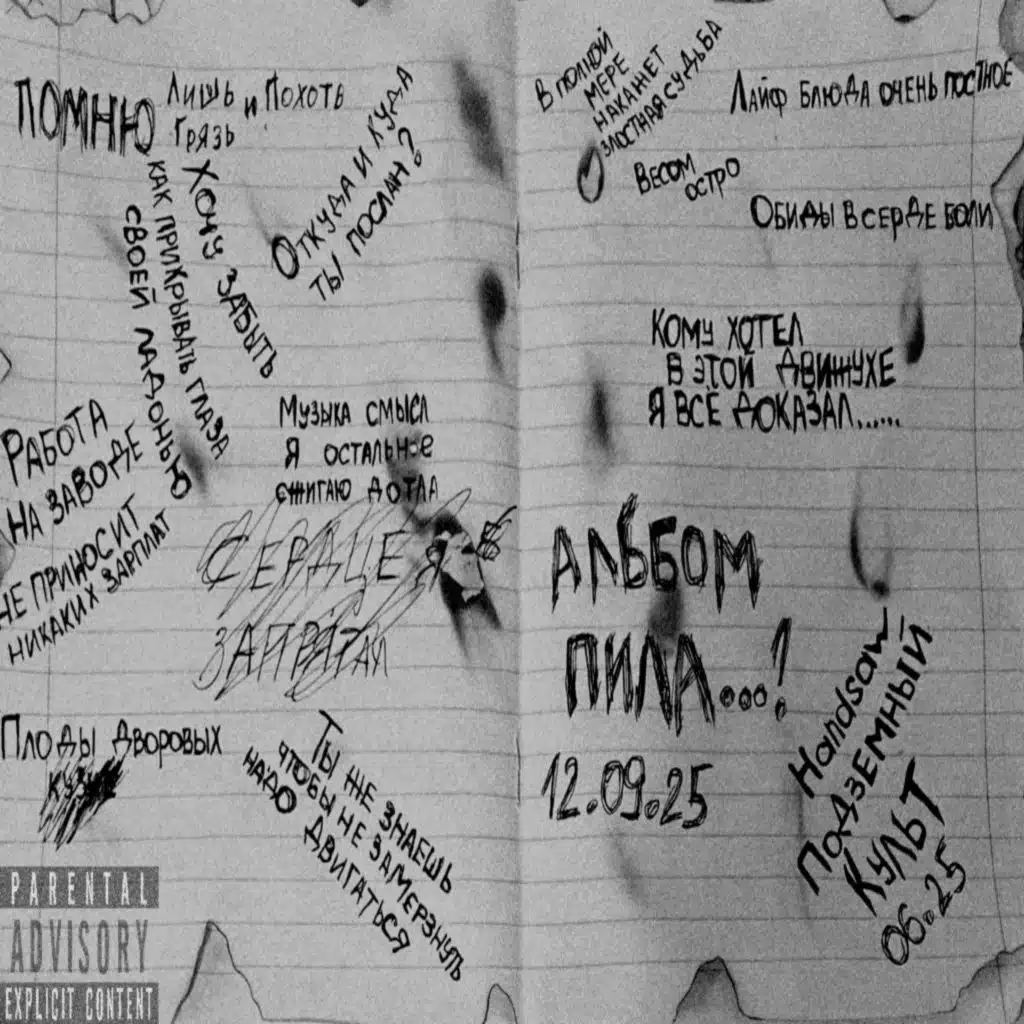 ПОМНЮ
Лишь и Похоть
Грязь
Хочу забыть
как прикрывать глаза
своей ладонью
Откуда и куда
ты послан?
Работа
на заводе
не приносит
никаких зарплат
Музыка смысл
Я остальное
сжигаю дотла
СЕРДЦЕ Я
ЗАПРЯТАЛ
Плоды Дворовых
Ты же знаешь
чтобы не замерзнуть
надо двигаться
PARENTAL
ADVISORY
EXPLICIT CONTENT
В полной
мере
накажет
злостная судьба
Лайф блюда очень постное
Весом
остро
Обиды в серде боли
Кому хотел
в этой движухе
Я всё доказал......
АЛЬБОМ
ПИЛА...!
12.09.25
Handsaw
Подземный
Культ
06.25